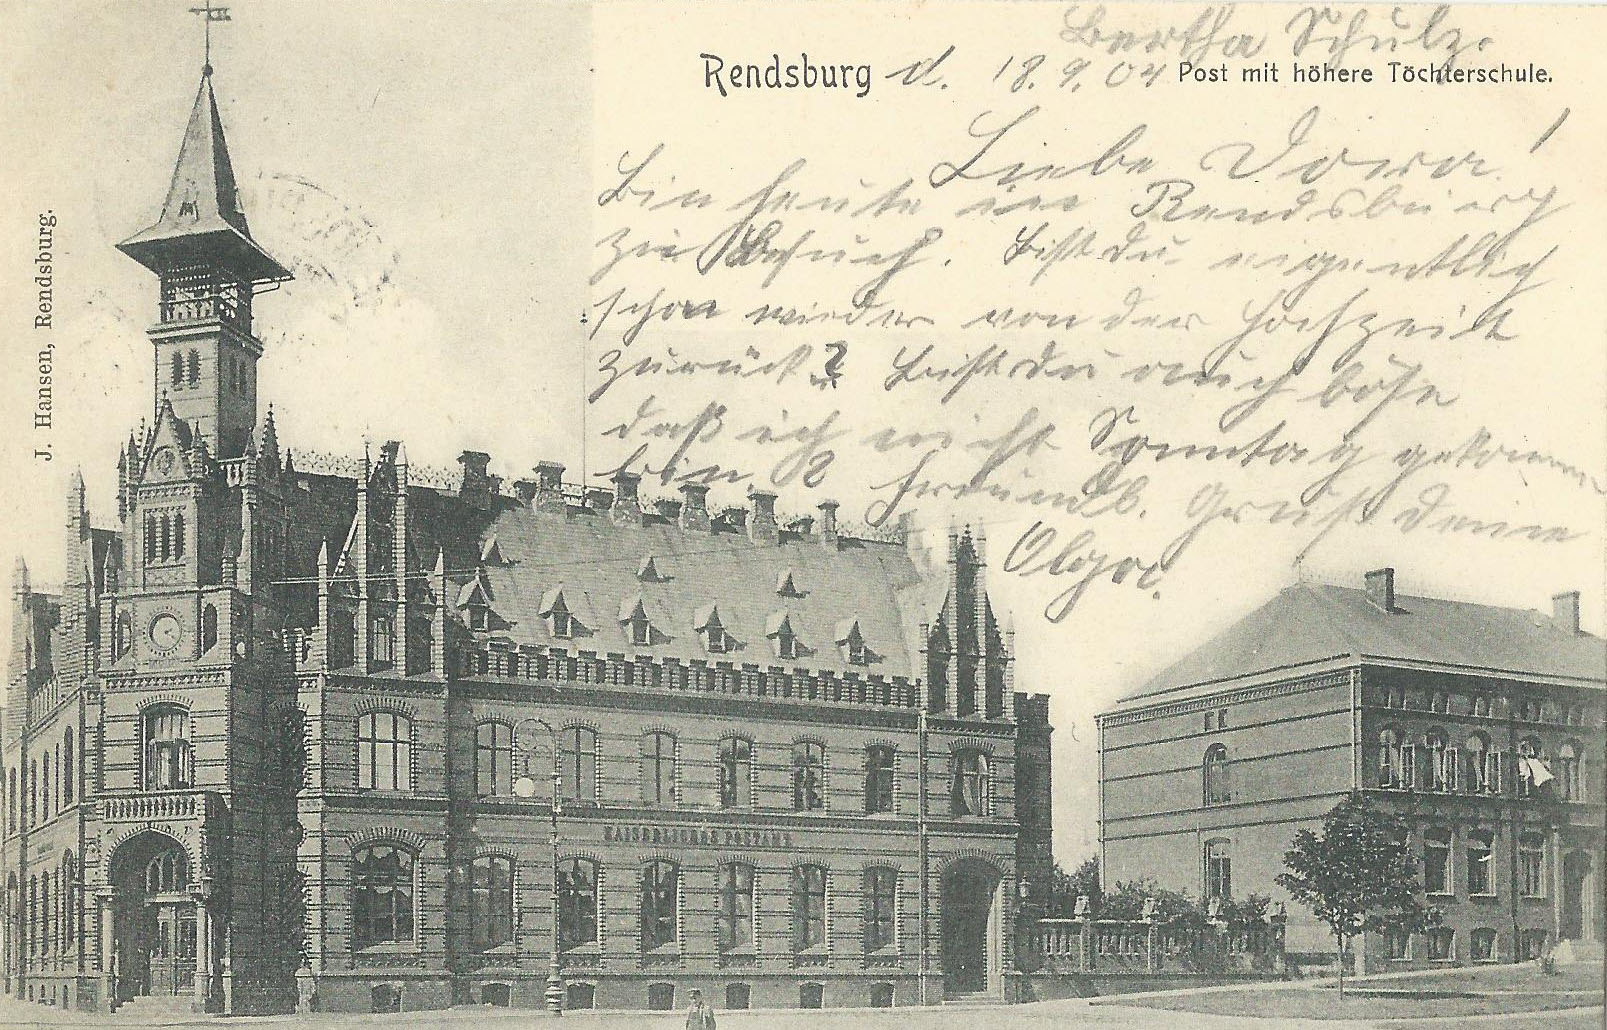 Bertha Schulz.
Rendsburg d. 18.9.04 Post mit höhere Töchterschule.
Liebe Dora!
Bin heute in Rendsburg
zu Besuch. Bist du eigentlich
schon wieder von der Hochzeit
zurück? Bist du auch böse
daß ich nicht Sonntag gekommen
bin? Freundl. Gruß deine
Olga.
J. Hansen, Rendsburg.
KAISERLICHES POSTAMT